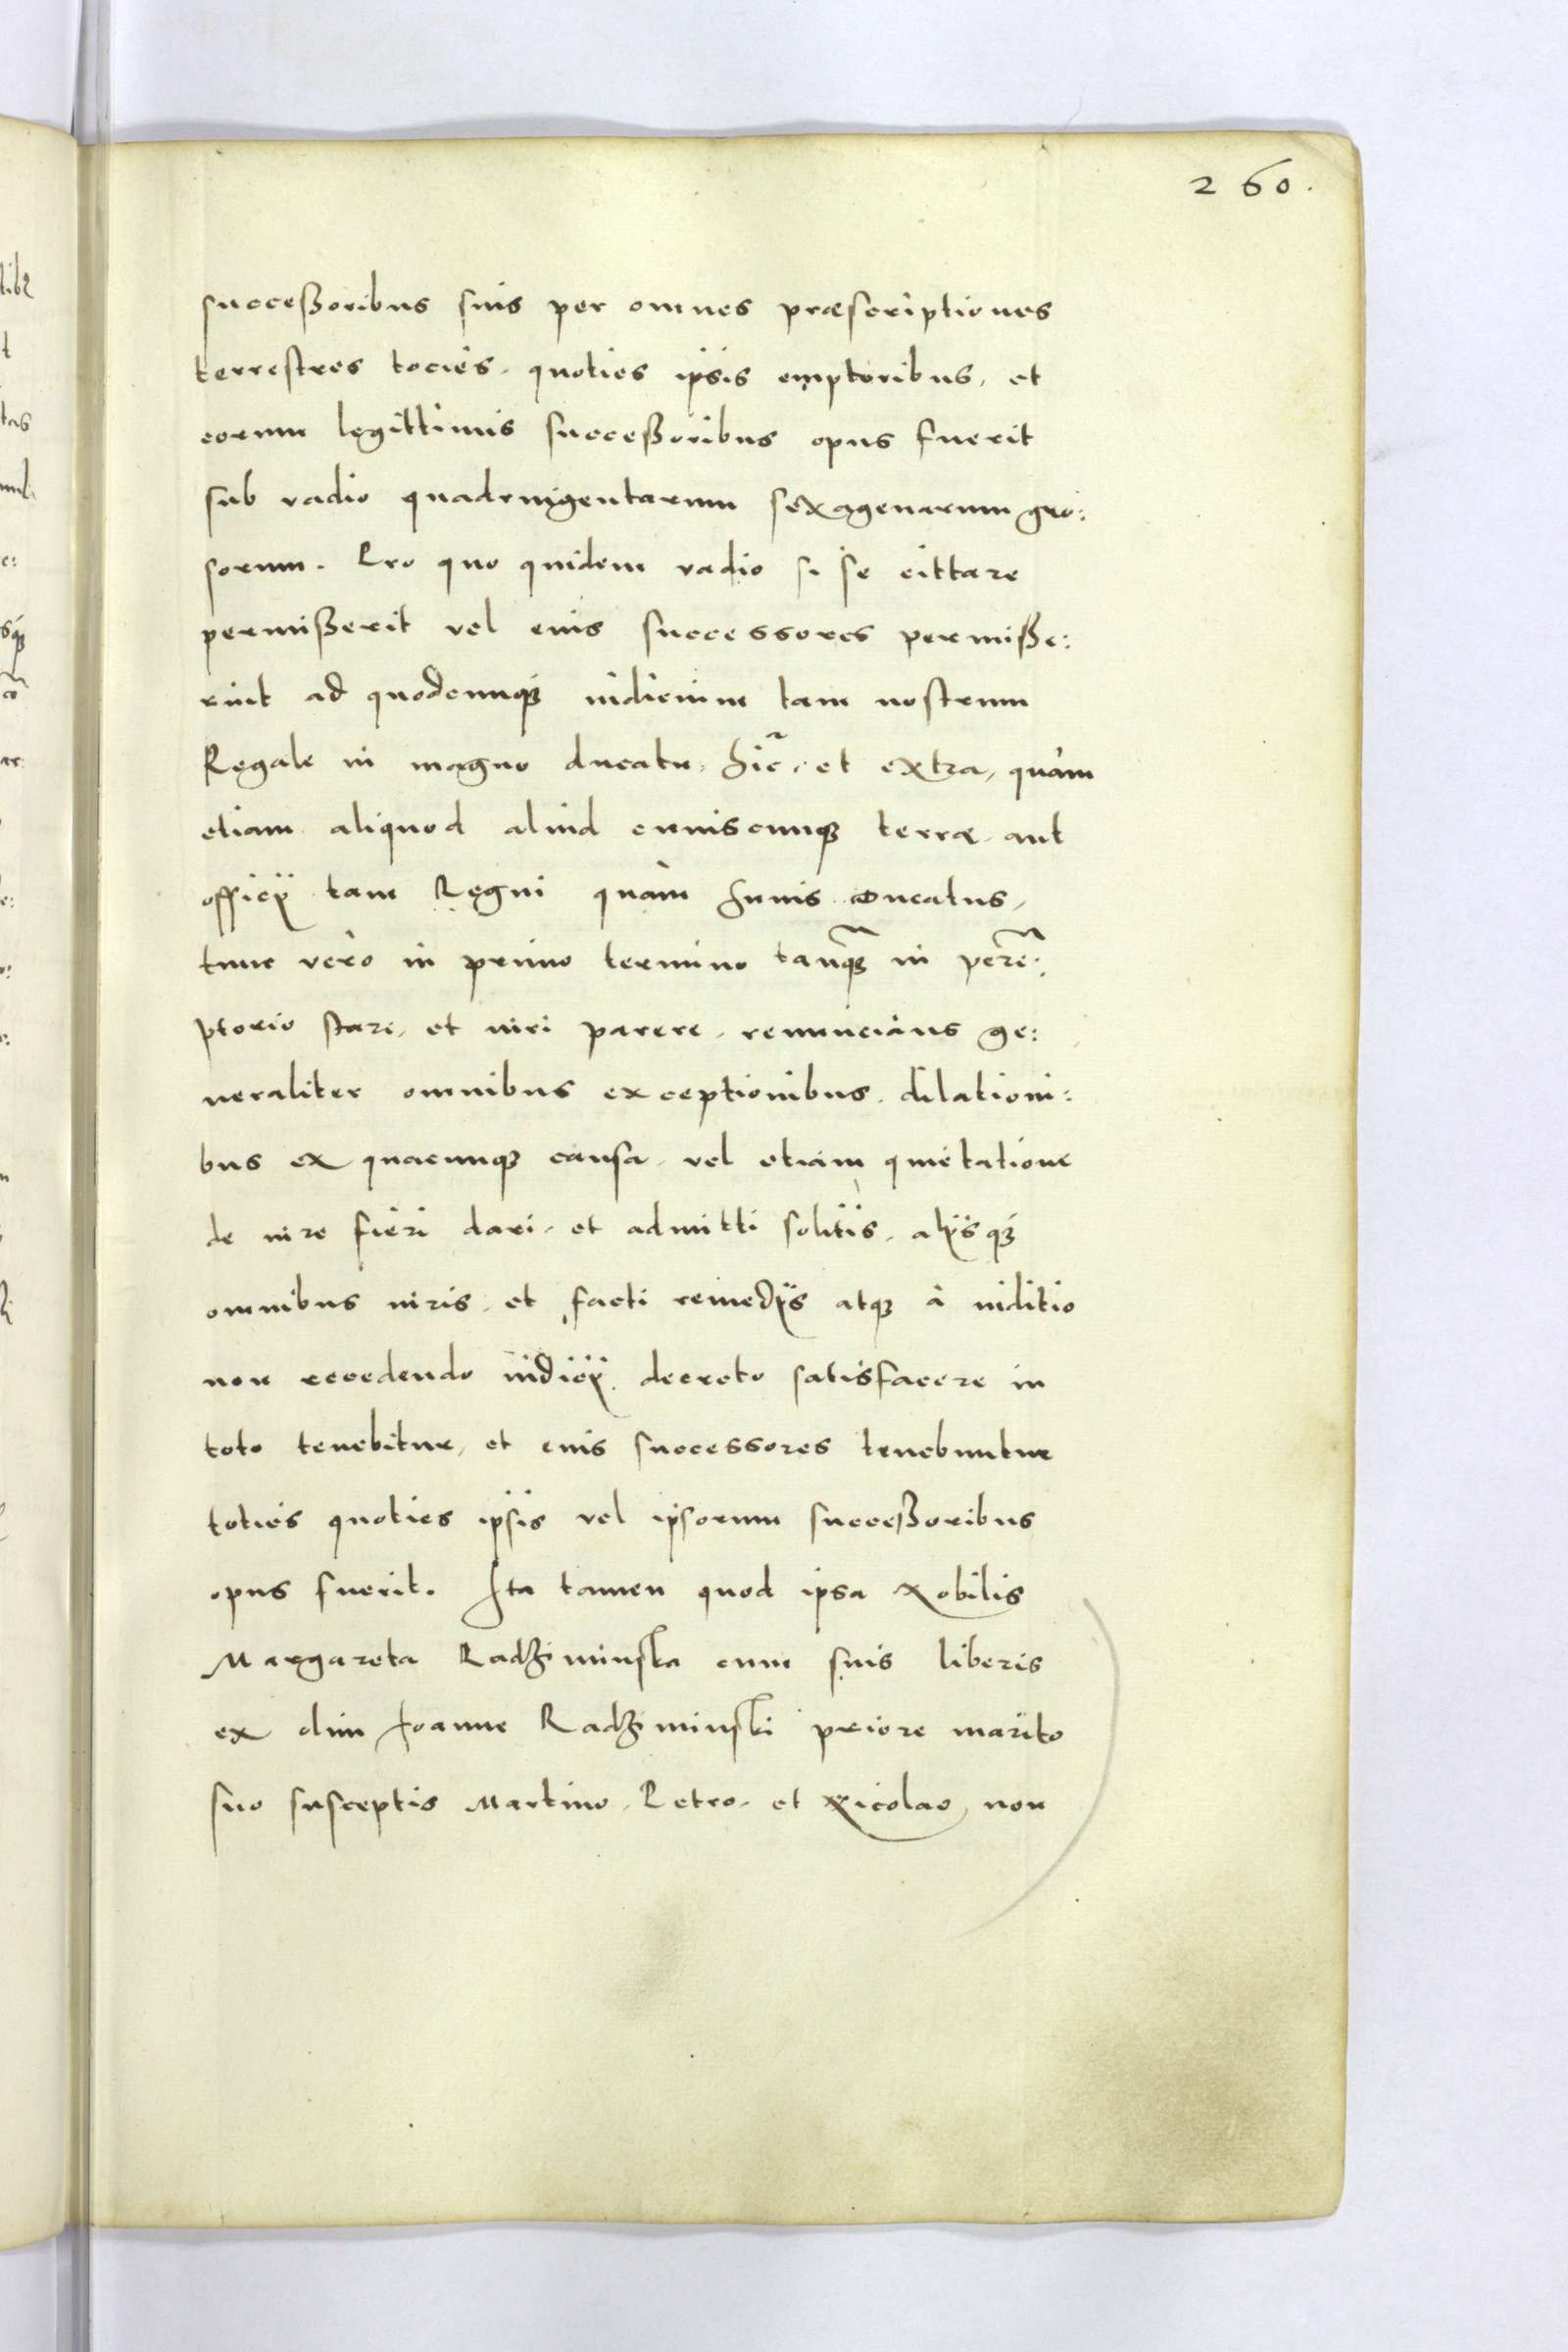 260.
succeßoribus suis per omnes præscriptiones
terrestres tocies, quoties ipsis emptoribus, et
eorum legittimis succeßoribus opus fuerit
sub vadio quadringentarum sexagenarum gro:
sorum. Pro quo quidem vadio si se cittare
permißerit vel eius successores permiße:
rint ad quodcunqué iudicium tam nostrum
Regale in magno ducatu, hic et extra, quàm
etiam aliquod aliud cuiuscunque terræ, aut
officij tam Regni quàm huius Ducatus,
tunc verò in primo termino tanquã in perẽ:
ptorio stare, et iuri parere, renuncians ge:
neraliter omnibus exceptionibus, dilationi:
bus ex quacunque causa, vel etiam quietatione
de iure fieri dari, et admitti solitis, alijsqué
omnibus iuris, et facti remedijs atque à iuditio
non recedendo iudicij decreto satisfacere in
toto tenebitur, et eius successores tenebuntur
toties quoties ipsis vel ipsorum succeßoribus
opus fuerit. Ita tamen quod ipsa Nobilis
Margareta Radziminska cum suis liberis
ex olim Ioanne Radziminski priore marito
suo susceptis Martino, Petro, et Nicolao, non